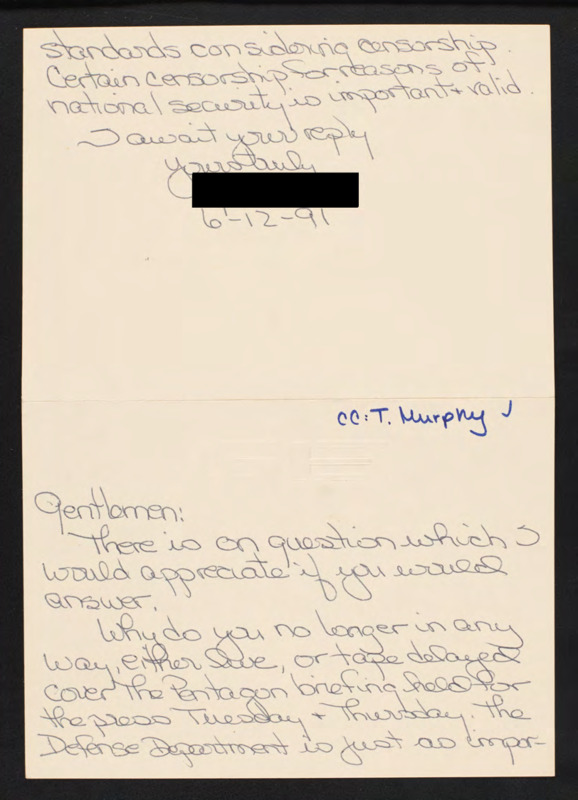 standards considering censorship.
Certain censorship for reasons of
national security is important + valid.
I await your reply
Yours truly
6-12-91
cc: T. Murphy ✓
Gentlemen:
There is on question which I
would appreciate if you would
answer.
Why do you no longer in any
way, either live, or tape delayed
cover the Pentagon briefing held for
the press Tuesday + Thursday. The
Defense Department is just as impor-